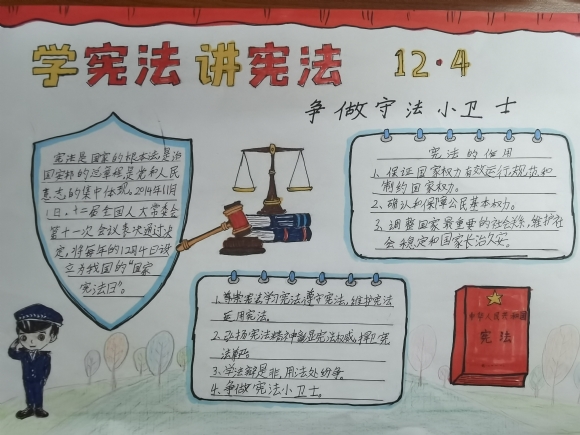 学宪法 讲宪法 12·4
争做守法小卫士
宪法是国家的根本法是治
国安邦的总章程是党和人民
意志的集中体现。2014年11月
1日,十二届全国人大常委会
第十一次会议表决通过决
定,将每年的12月4日设
立为我国的“国家
宪法日”。
宪法的作用
1、保证国家权力有效运行规范和
制约国家权力。
2、确认和保障公民基本权力。
3、调整国家最重要的社会关系,维护社
会稳定和国家长治久安。
1、尊崇宪法学习宪法遵守宪法,维护宪法
运用宪法。
2、弘扬宪法精神彰显宪法权威,捍卫宪
法尊严。
3、学法辨是非,用法处纷争。
4、争做宪法小卫士。
中华人民共和国
宪法